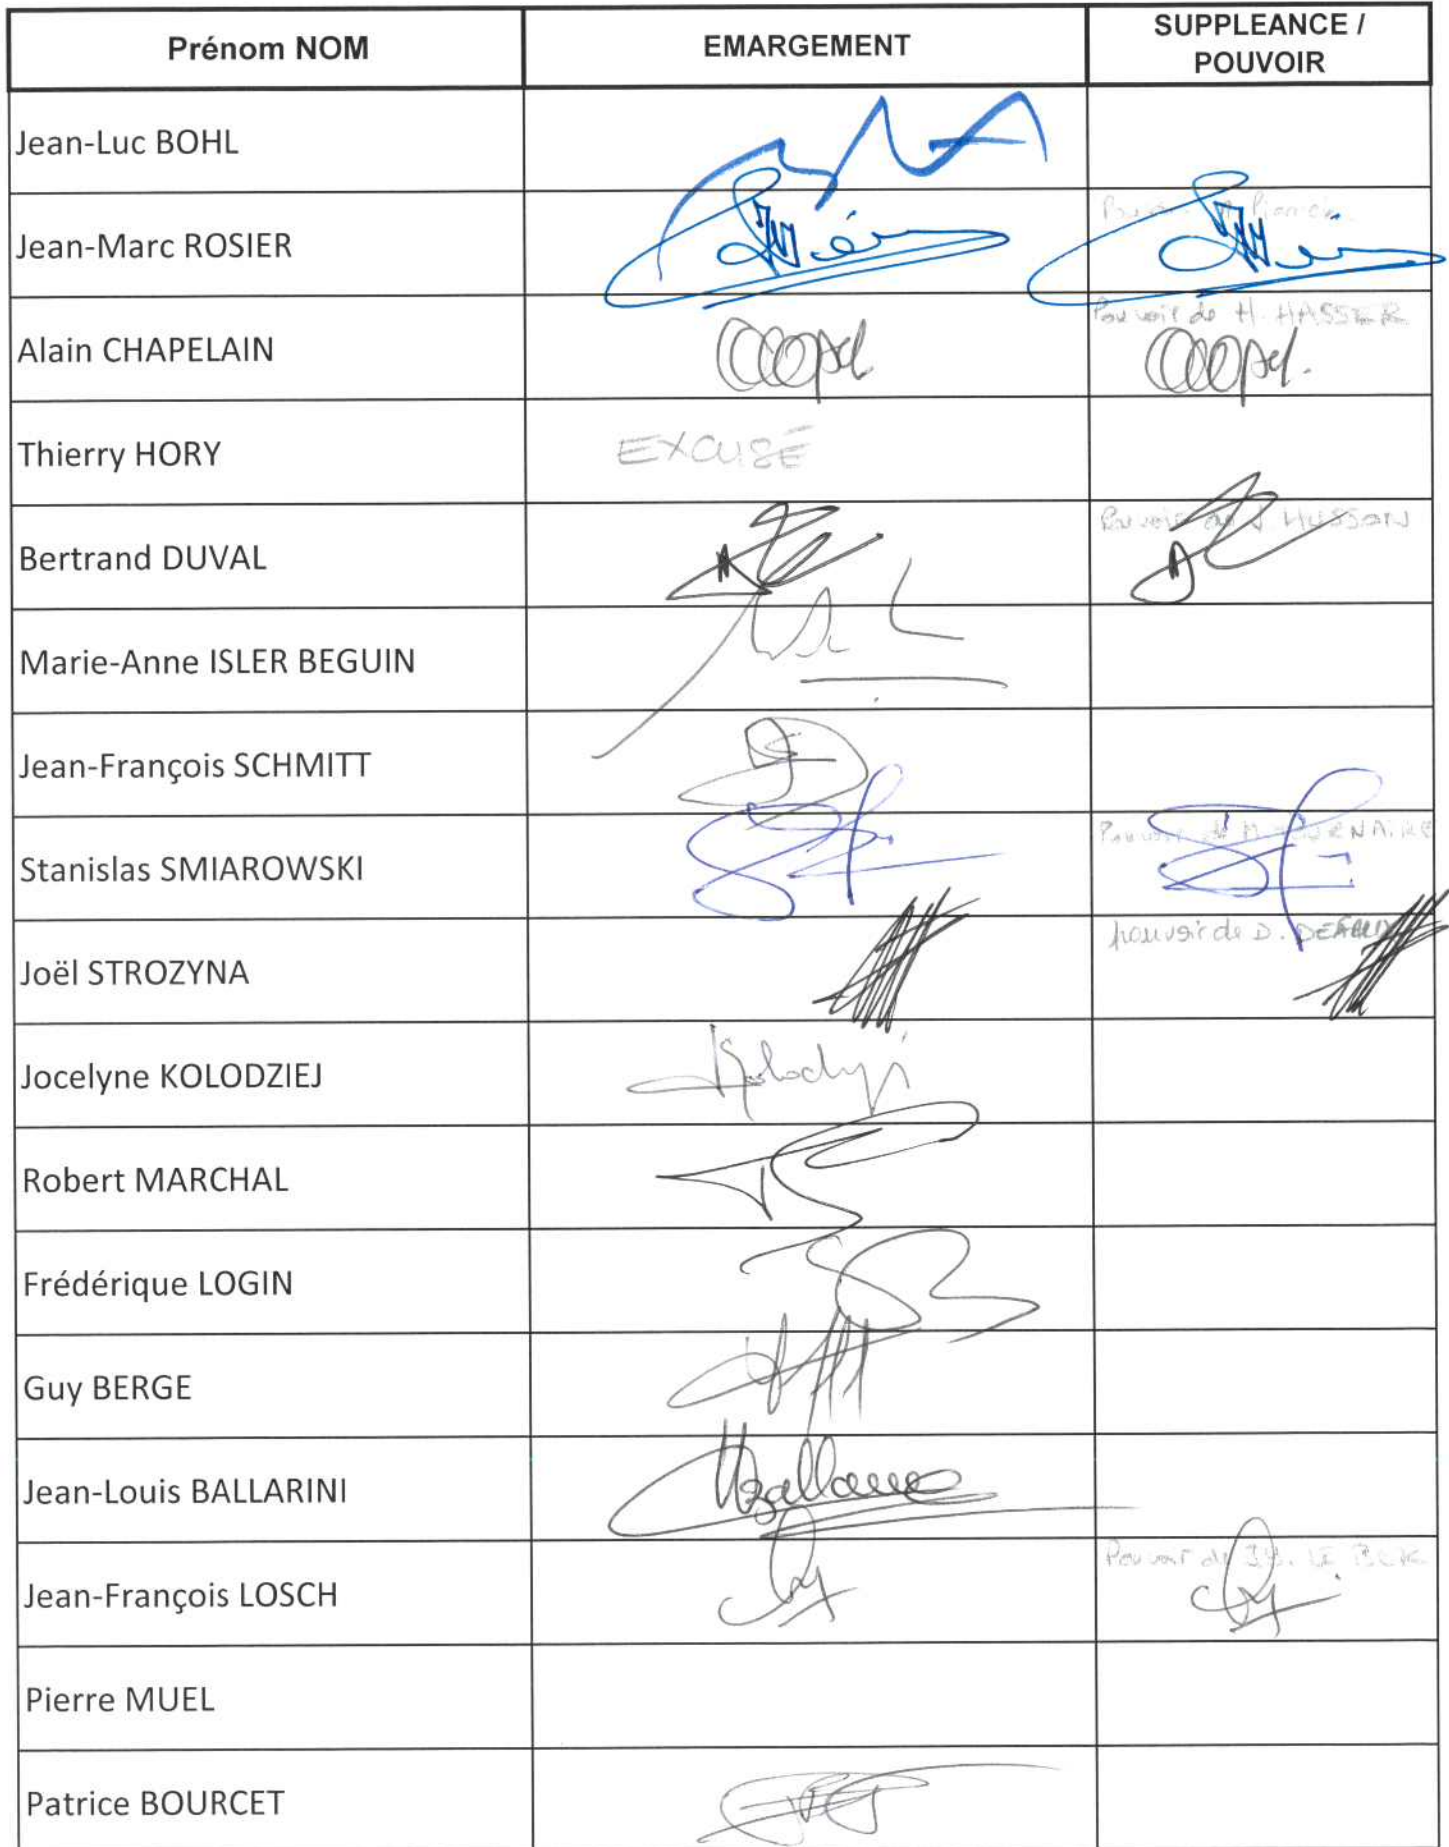 Prénom NOM
EMARGEMENT
SUPPLEANCE /
POUVOIR
Jean-Luc BOHL
Jean-Marc ROSIER
Alain CHAPELAIN
Pouvoir de H. HASSER
Thierry HORY
EXCUSÉ
Bertrand DUVAL
Pouvoir de J HUSSON
Marie-Anne ISLER BEGUIN
Jean-François SCHMITT
Stanislas SMIAROWSKI
Pouvoir de M.
Joël STROZYNA
pouvoir de D.
Jocelyne KOLODZIEJ
Robert MARCHAL
Frédérique LOGIN
Guy BERGE
Jean-Louis BALLARINI
Jean-François LOSCH
Pouvoir de
Pierre MUEL
Patrice BOURCET